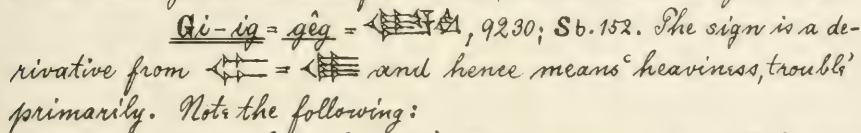 Gi-ig = gêg = 𒈪𒍣, 9230; Sb. 152. The sign is a de-
rivative from = and hence means 'heaviness, trouble'
primarily. Note the following: